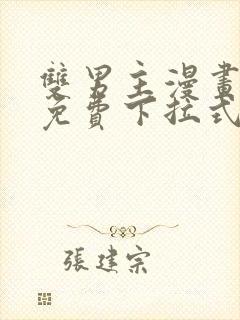 雙男主漫畫
免費下拉式
張建宗